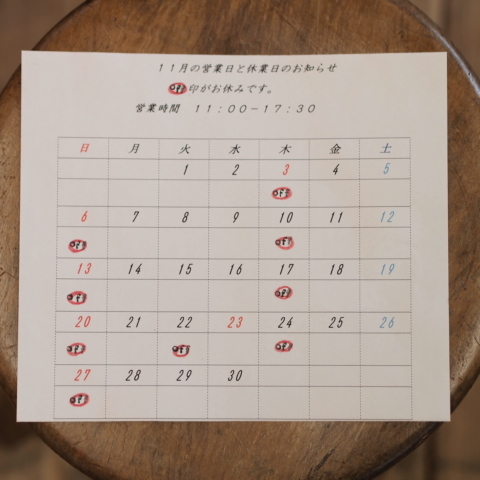 11月の営業日と休業日のお知らせ
off印がお休みです。
営業時間 11:00-17:30
日 月 火 水 木 金 土
1 2 3 4 5
off
6 7 8 9 10 11 12
off off
13 14 15 16 17 18 19
off off
20 21 22 23 24 25 26
off off off
27 28 29 30
off